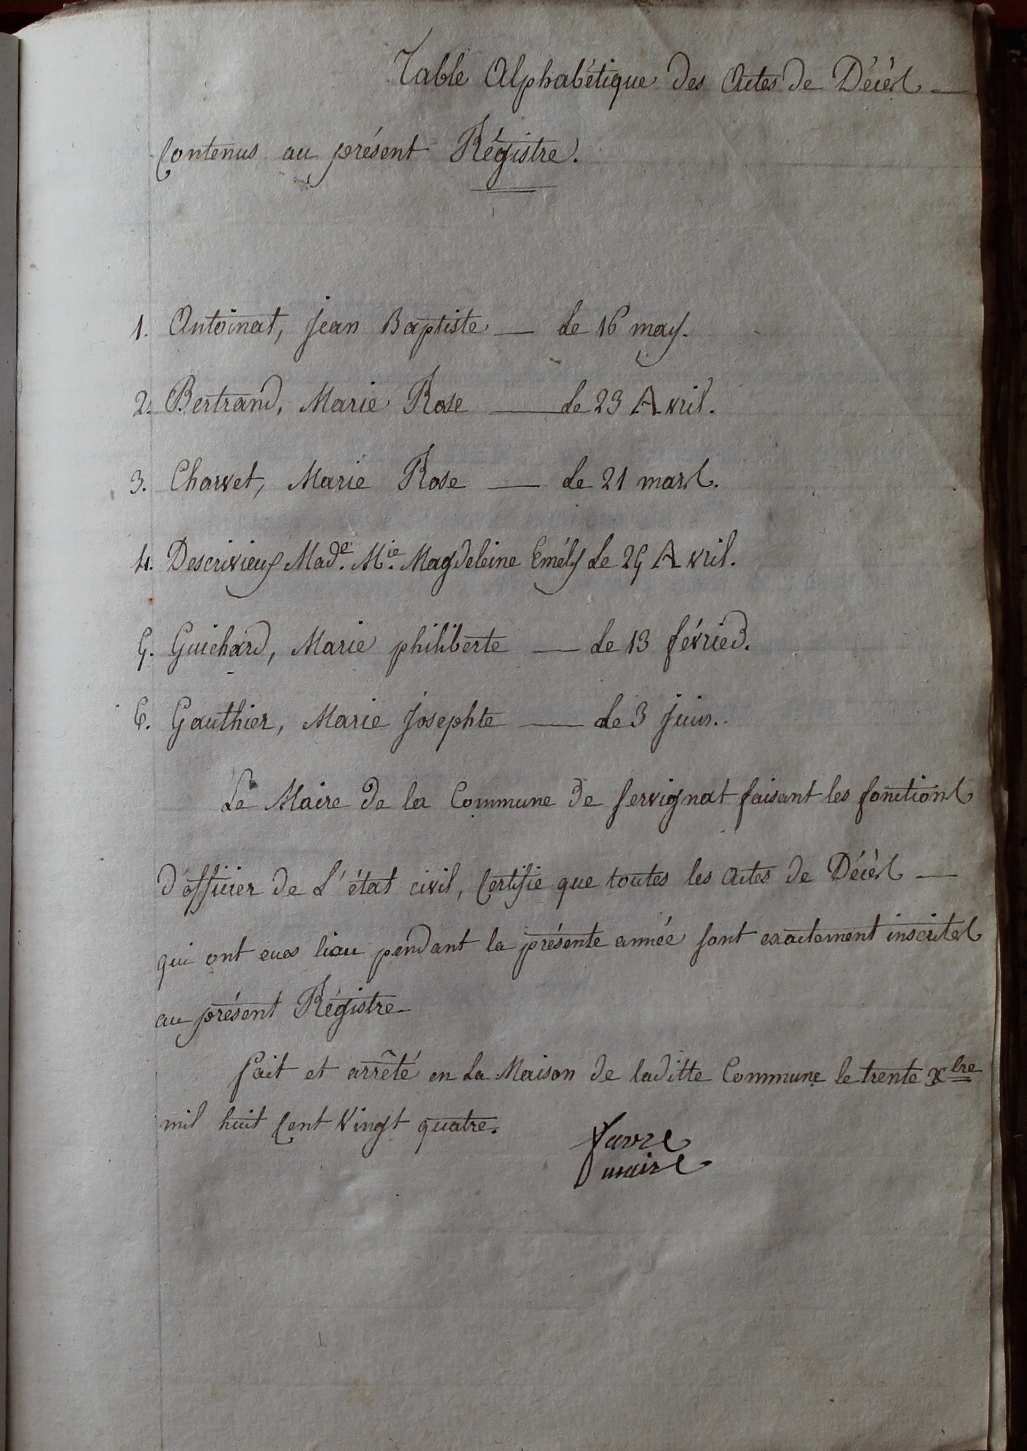 Table Alphabétique des Actes de Décès
Contenus au présent Régistre.
1. Antoinat, Jean Baptiste — le 16 may.
2. Bertrand, Marie Rose — le 23 Avril.
3. Charvet, Marie Rose — le 21 mars.
4. Descrivieux Mad.e M.ie Magdeleine Emély le 25 Avril.
5. Guichard, Marie philiberte — le 13 février.
6. Gauthier, Marie Josephte — le 3 juin.
Le Maire de la Commune de Servignat faisant les fonctions
d'officier de L'état civil, Certifie que toutes les Actes de Décès —
qui ont eues lieu pendant la présente année sont exactement inscrites
au présent Régistre.
fait et arrêté en La Maison de laditte Commune le trente Xbre
mil huit Cent Vingt quatre.
favre
maire